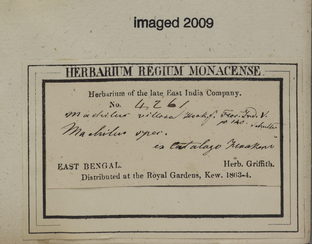 imaged 2009
HERBARIUM REGIUM MONACENSE.
Herbarium of the late East India Company.
No. 4261
Machilus villosa Hook f. Flor. Ind. V.
Machilus spec.
ex Catalogo
EAST BENGAL. Herb. Griffith.
Distributed at the Royal Gardens, Kew. 1863-4.